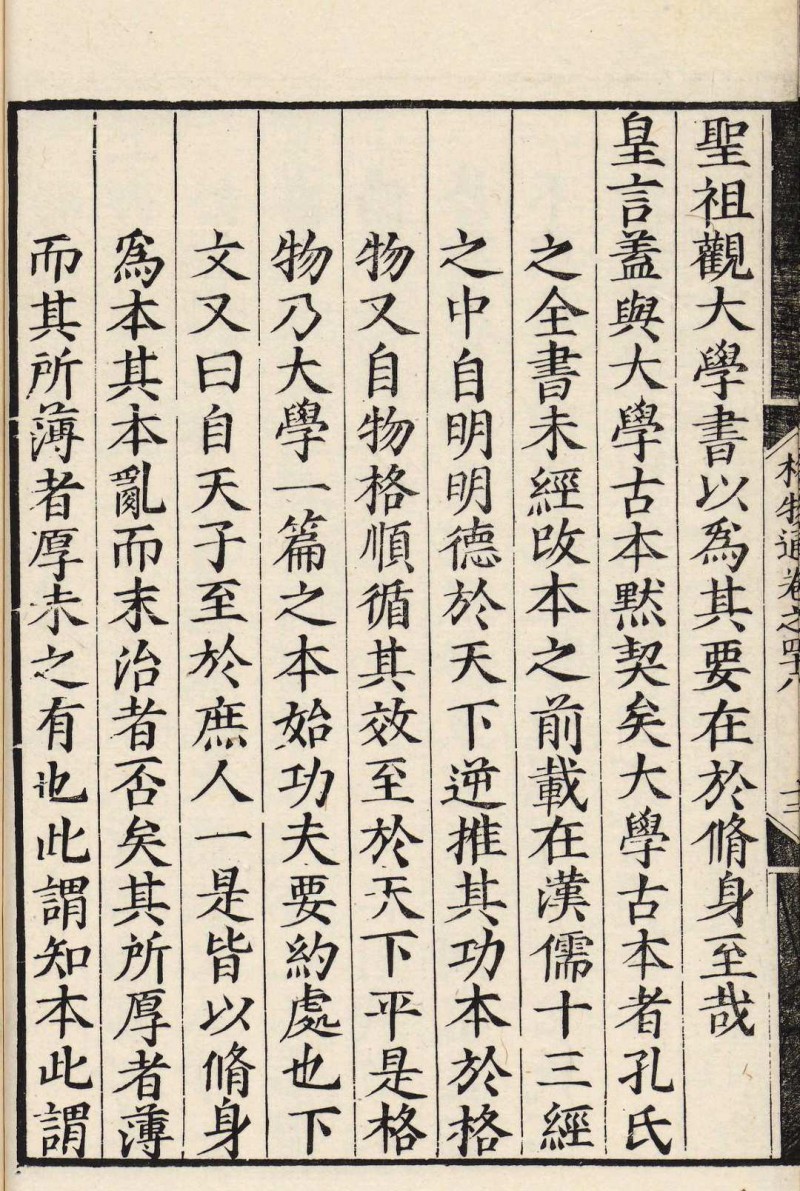 聖祖觀大學書以爲其要在於脩身至哉
皇言蓋與大學古本默契矣大學古本者孔氏
之全書未經改本之前載在漢儒十三經
之中自明明德於天下逆推其功本於格
物又自物格順循其效至於天下平是格
物乃大學一篇之本始功夫要約處也下
文又曰自天子至於庶人一是皆以脩身
爲本其本亂而末治者否矣其所厚者薄
而其所薄者厚未之有也此謂知本此謂